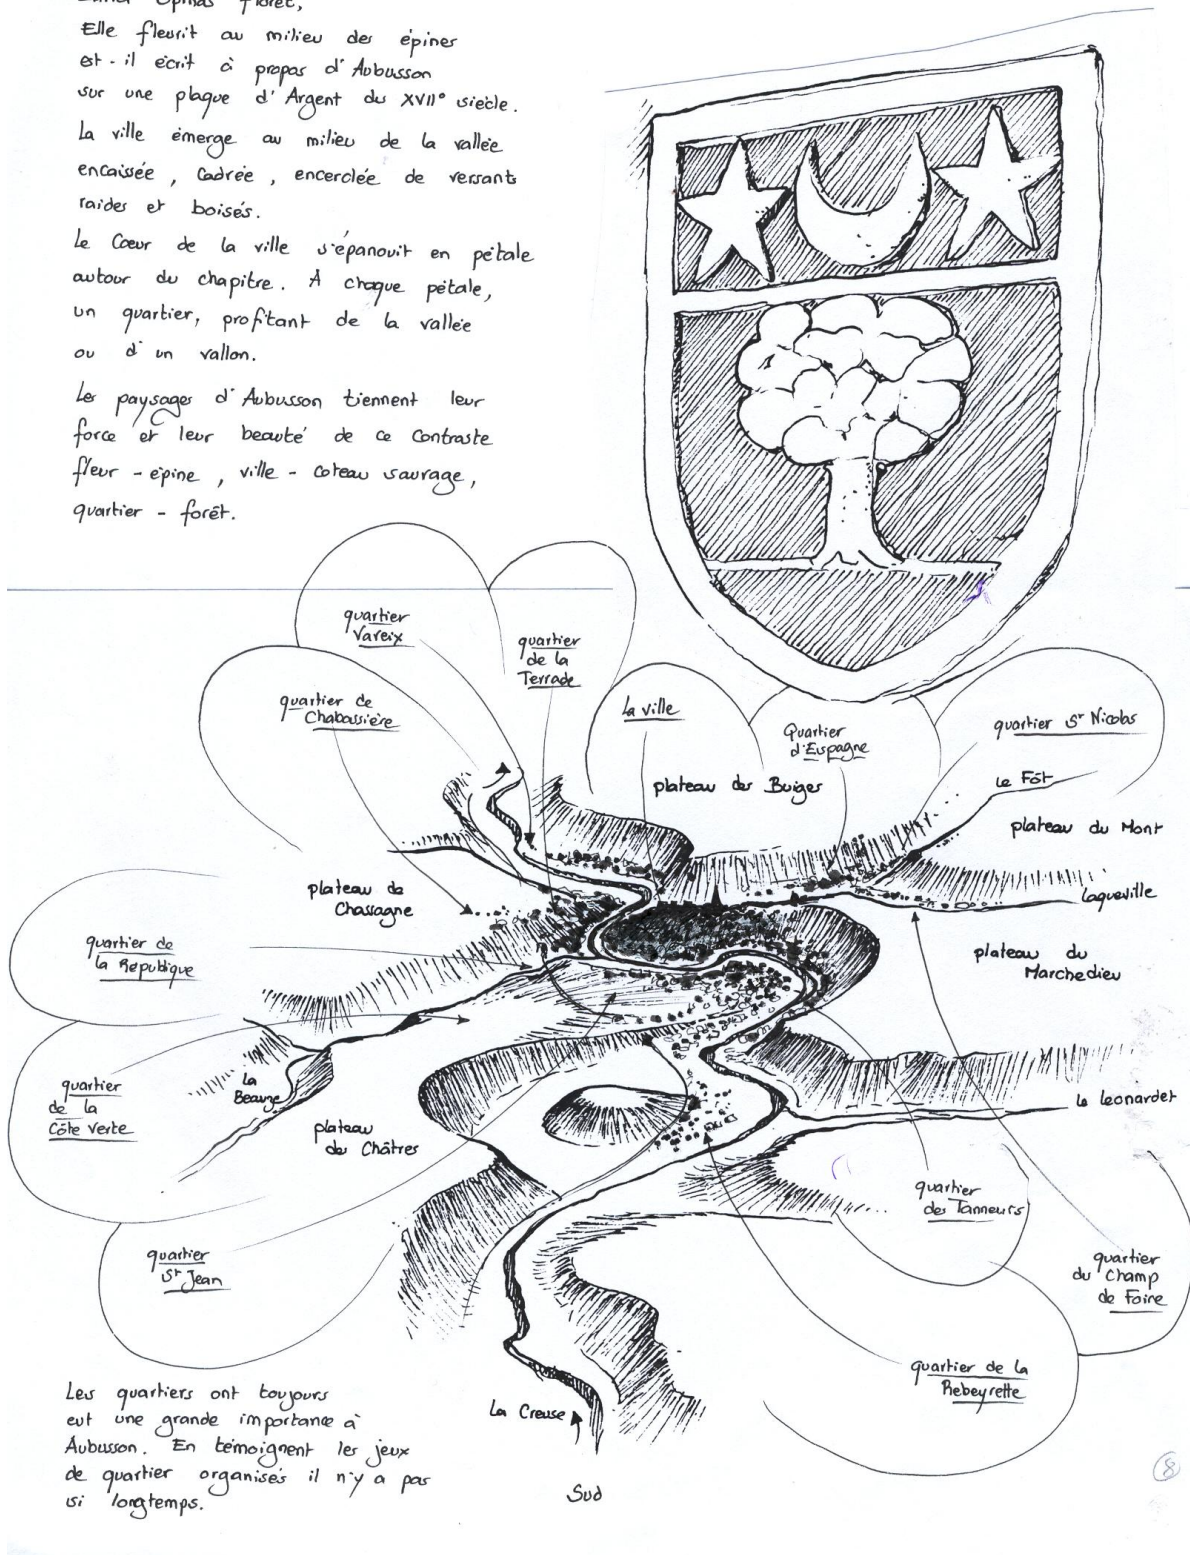 Elle fleurit au milieu des épines
est-il écrit à propos d'Aubusson
sur une plaque d'Argent du XVII° siècle.
La ville émerge au milieu de la vallée
encaissée, cadrée, encerclée de versants
raides et boisés.
Le Cœur de la ville s'épanouit en pétale
autour du chapitre. A chaque pétale,
un quartier, profitant de la vallée
ou d'un vallon.
Les paysages d'Aubusson tiennent leur
force et leur beauté de ce contraste
fleur - épine, ville - coteau sauvage,
quartier - forêt.
quartier
Vareix
quartier
de la
Terrade
quartier de
Chabassière
La ville
Quartier
d'Espagne
quartier St Nicolas
plateau des Buiges
Le Fôt
plateau du Mont
plateau de
Chassagne
Laqueville
quartier de
la République
plateau du
Marchedieu
quartier
de la
Côte Verte
La
Beauze
plateau
des Châtres
Le Leonardet
quartier
des Tanneurs
quartier
St Jean
quartier
du Champ
de Foire
quartier de la
Rebeyrette
Les quartiers ont toujours
eut une grande importance à
Aubusson. En témoignent les jeux
de quartier organisés il n'y a pas
si longtemps.
La Creuse
Sud
8